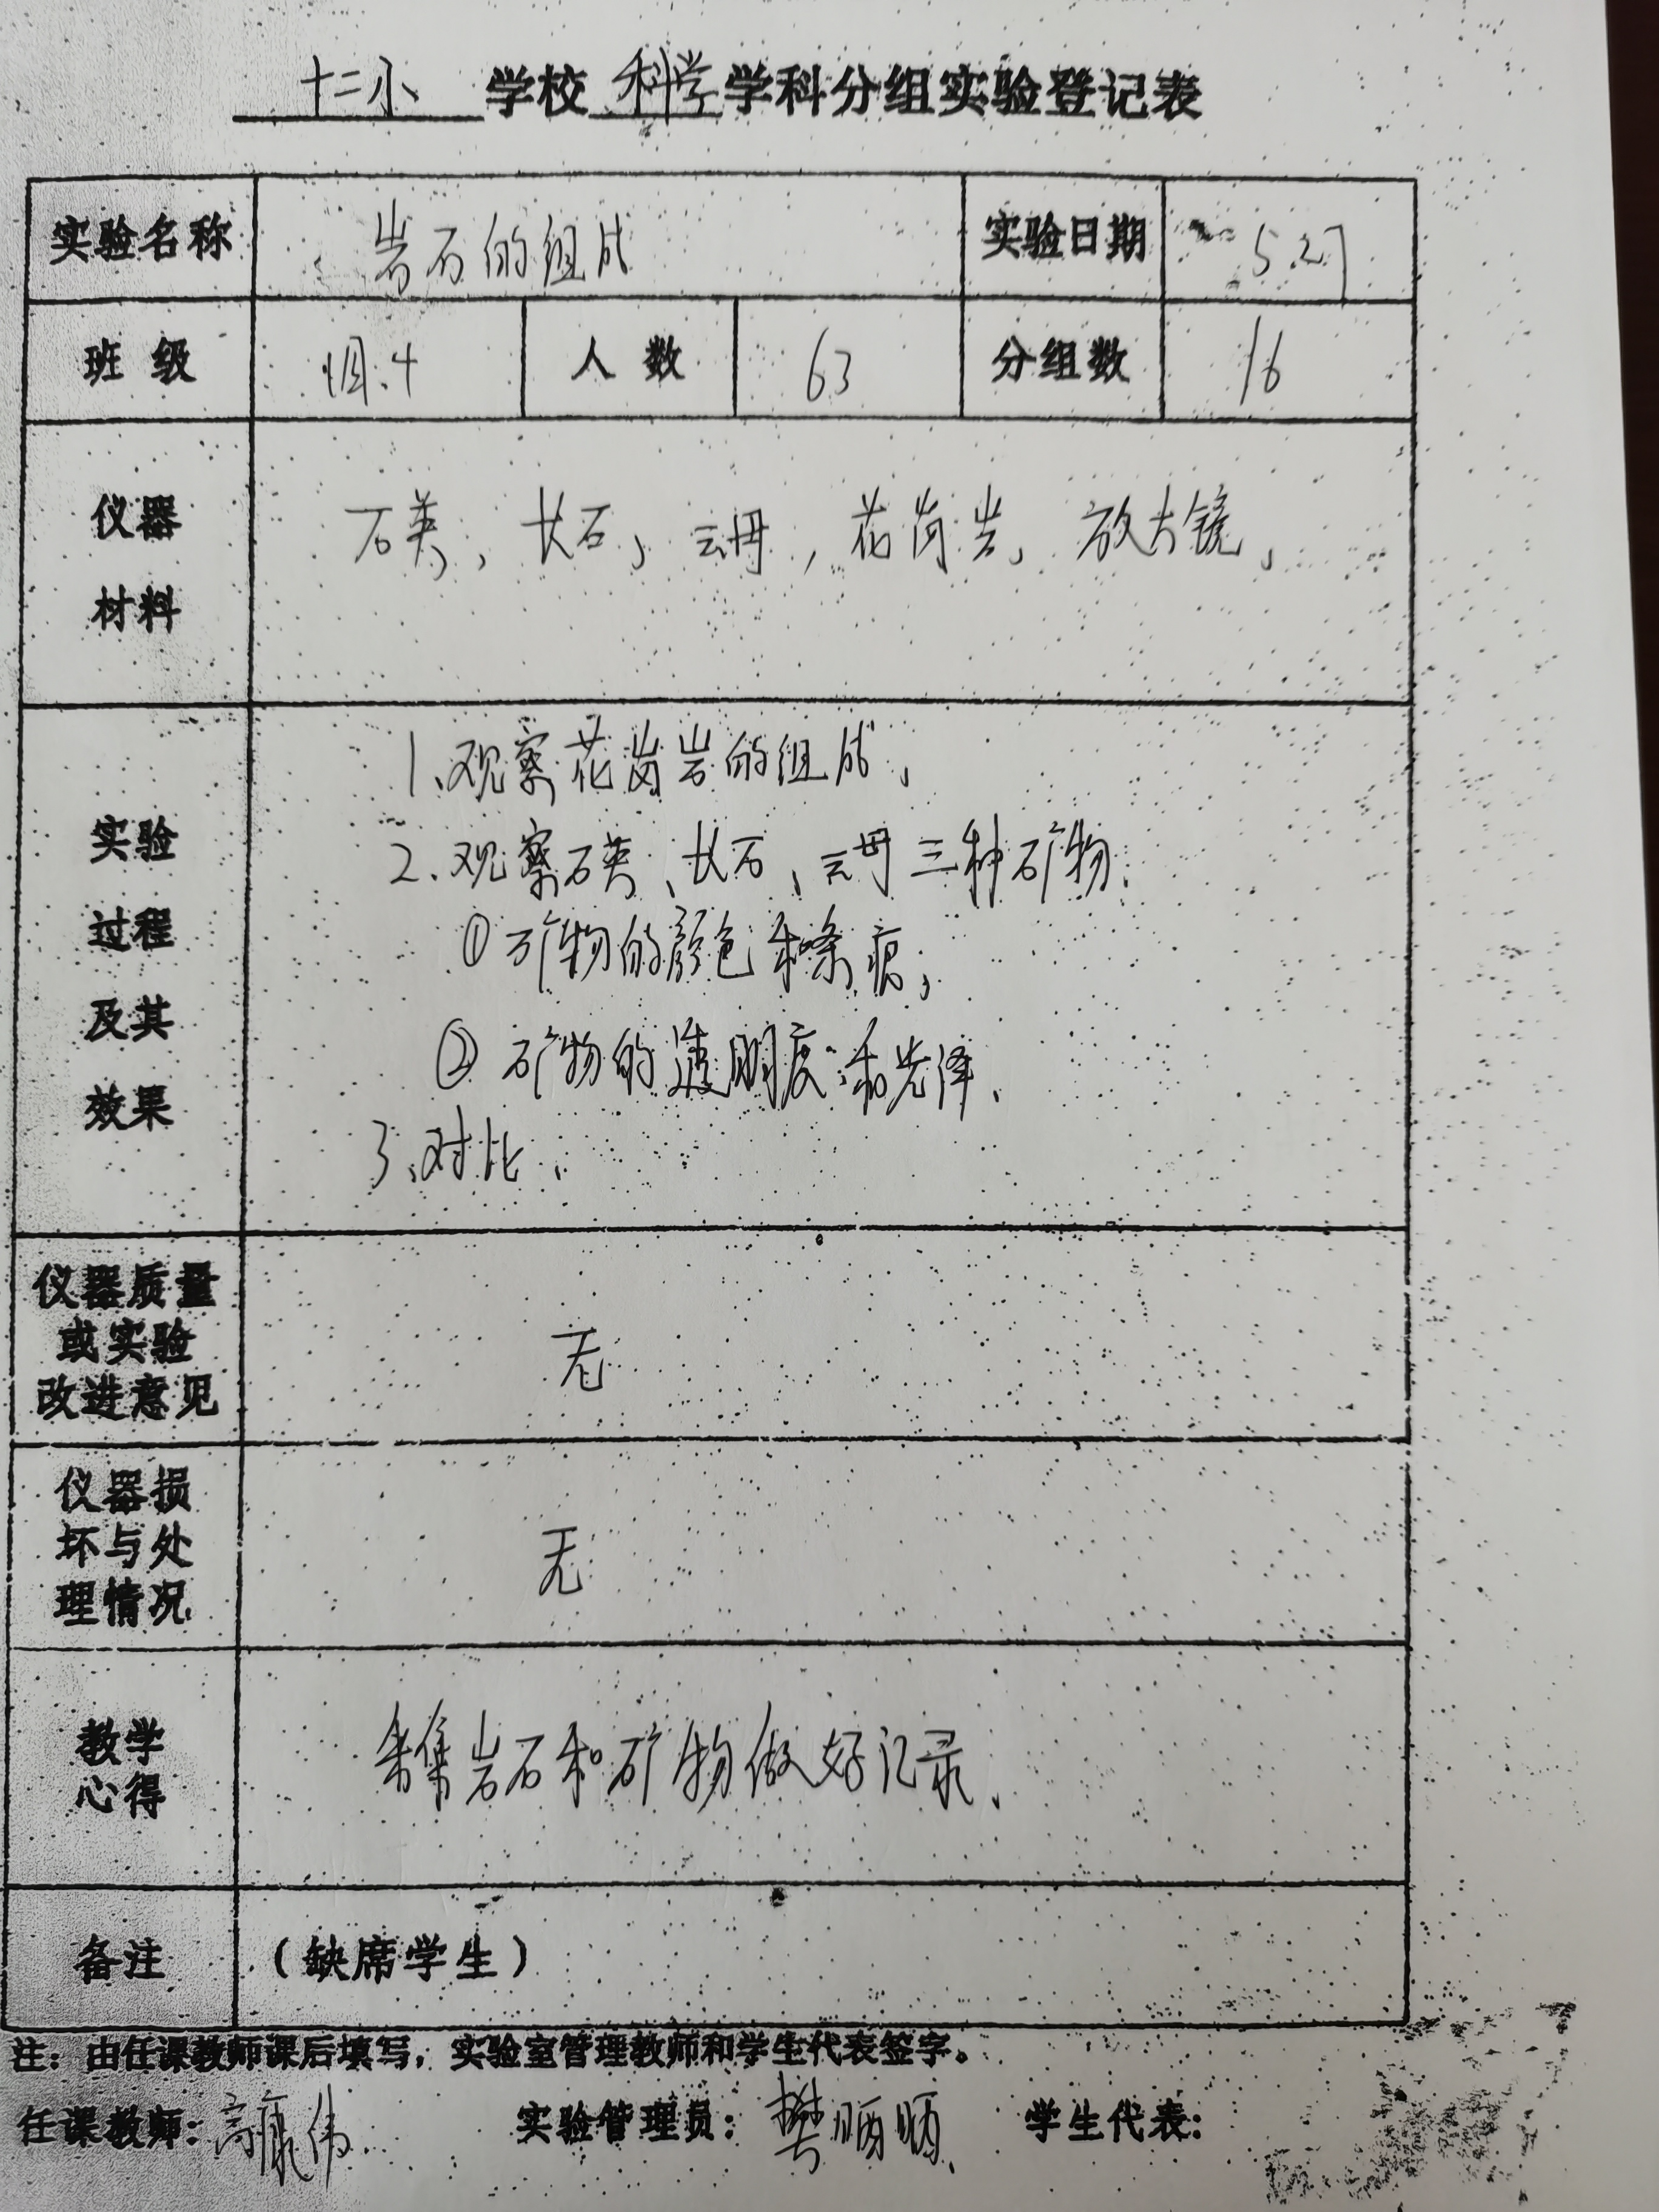 十二小 学校 科学 学科分组实验登记表
实验名称 岩石的组成 实验日期 5.27
班 级 四.4 人 数 63 分组数 16
仪器
材料
石英、长石、云母,花岗岩、放大镜、
实验
过程
及其
效果
1、观察花岗岩的组成、
2、观察石英、长石、云母三种矿物:
①矿物的颜色和条痕;
② 矿物的透明度和光泽、
3、对比、
仪器质量
或实验
改进意见
无
仪器损
坏与处
理情况
无
教学
心得
集岩石和矿物做好记录、
备注 (缺席学生)
注:由任课教师课后填写,实验室管理教师和学生代表签字。
任课教师:高康伟 实验管理员:樊 学生代表: